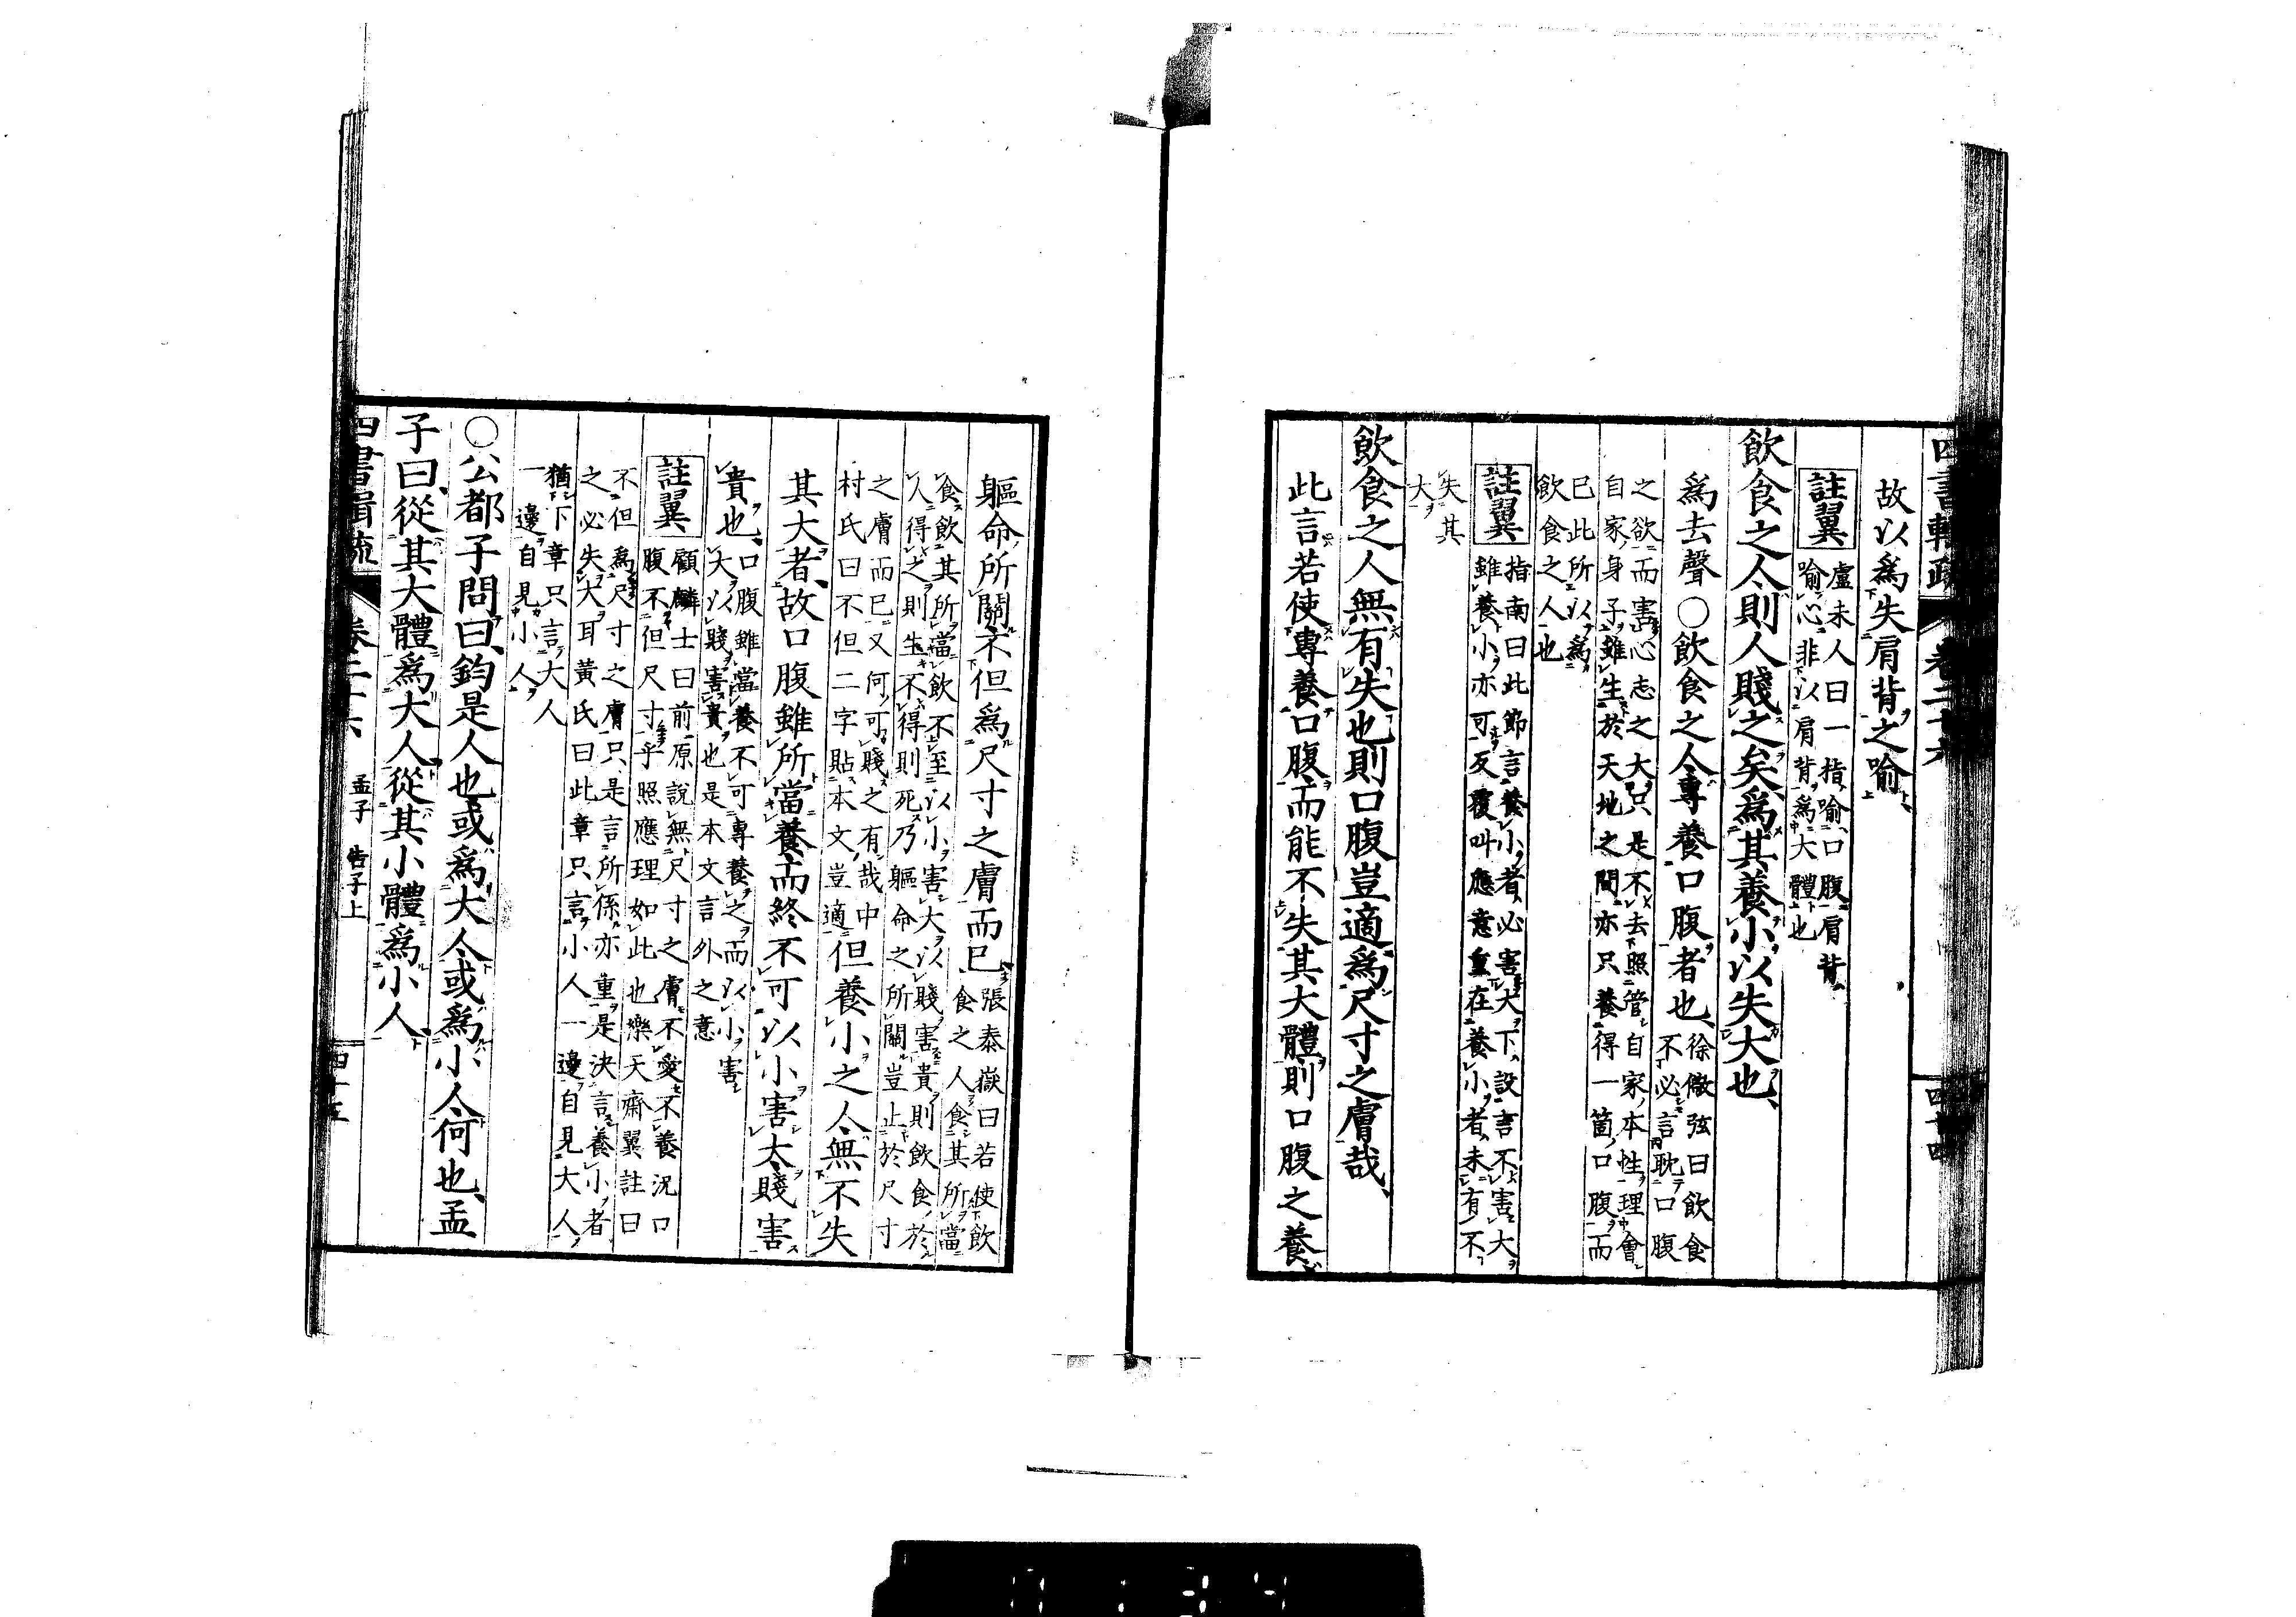 四書輯疏 卷二十六 四十四
故以爲失肩背之喻
註翼 盧未人曰一指喻口腹肩背
喻心非以肩背爲大體也
飲食之人則人賤之矣爲其養小以失大也
爲去聲○飲食之人專養口腹者也 徐儆弦曰飲食
不必言耽口腹
之欲而害心志之大只是不去照管自家本性理會
自家身子雖生於天地之間亦只養得一箇口腹而
已此所以爲
飲食之人也
註翼 指南曰此節言養小者必害大下設言不害大
雖養小亦可反覆叫應意重在養小者未有不
失其
大
飲食之人無有失也則口腹豈適爲尺寸之膚哉
此言若使專養口腹而能不失其大體則口腹之養
軀命所關不但爲尺寸之膚而已 張泰嶽曰若使飲
食之人食其所當
食飲其所當飲不至以小害大以賤害貴則飲食於
人得之則生不得則死乃軀命之所關豈止於尺寸
之膚而已又何可賤之有哉中
村氏曰不但二字貼本文豈適 但養小之人無不失
其大者故口腹雖所當養而終不可以小害大賤害
貴也 口腹雖當養不可專養之而以小害
大以賤害貴也是本文言外之意
註翼 顧麟士曰前原說無尺寸之膚不愛不養況口
腹不但尺寸乎照應理如此也樂天齋翼註曰
不但爲尺寸之膚只是言所係亦重是決言養小者
之必失大耳黃氏曰此章只言小人一邊自見大人
猶下章只言大人
一邊自見小人
○公都子問曰鈞是人也或爲大人或爲小人何也孟
子曰從其大體爲大人從其小體爲小人
四書輯疏 卷二十六 孟子 告子上 四十五